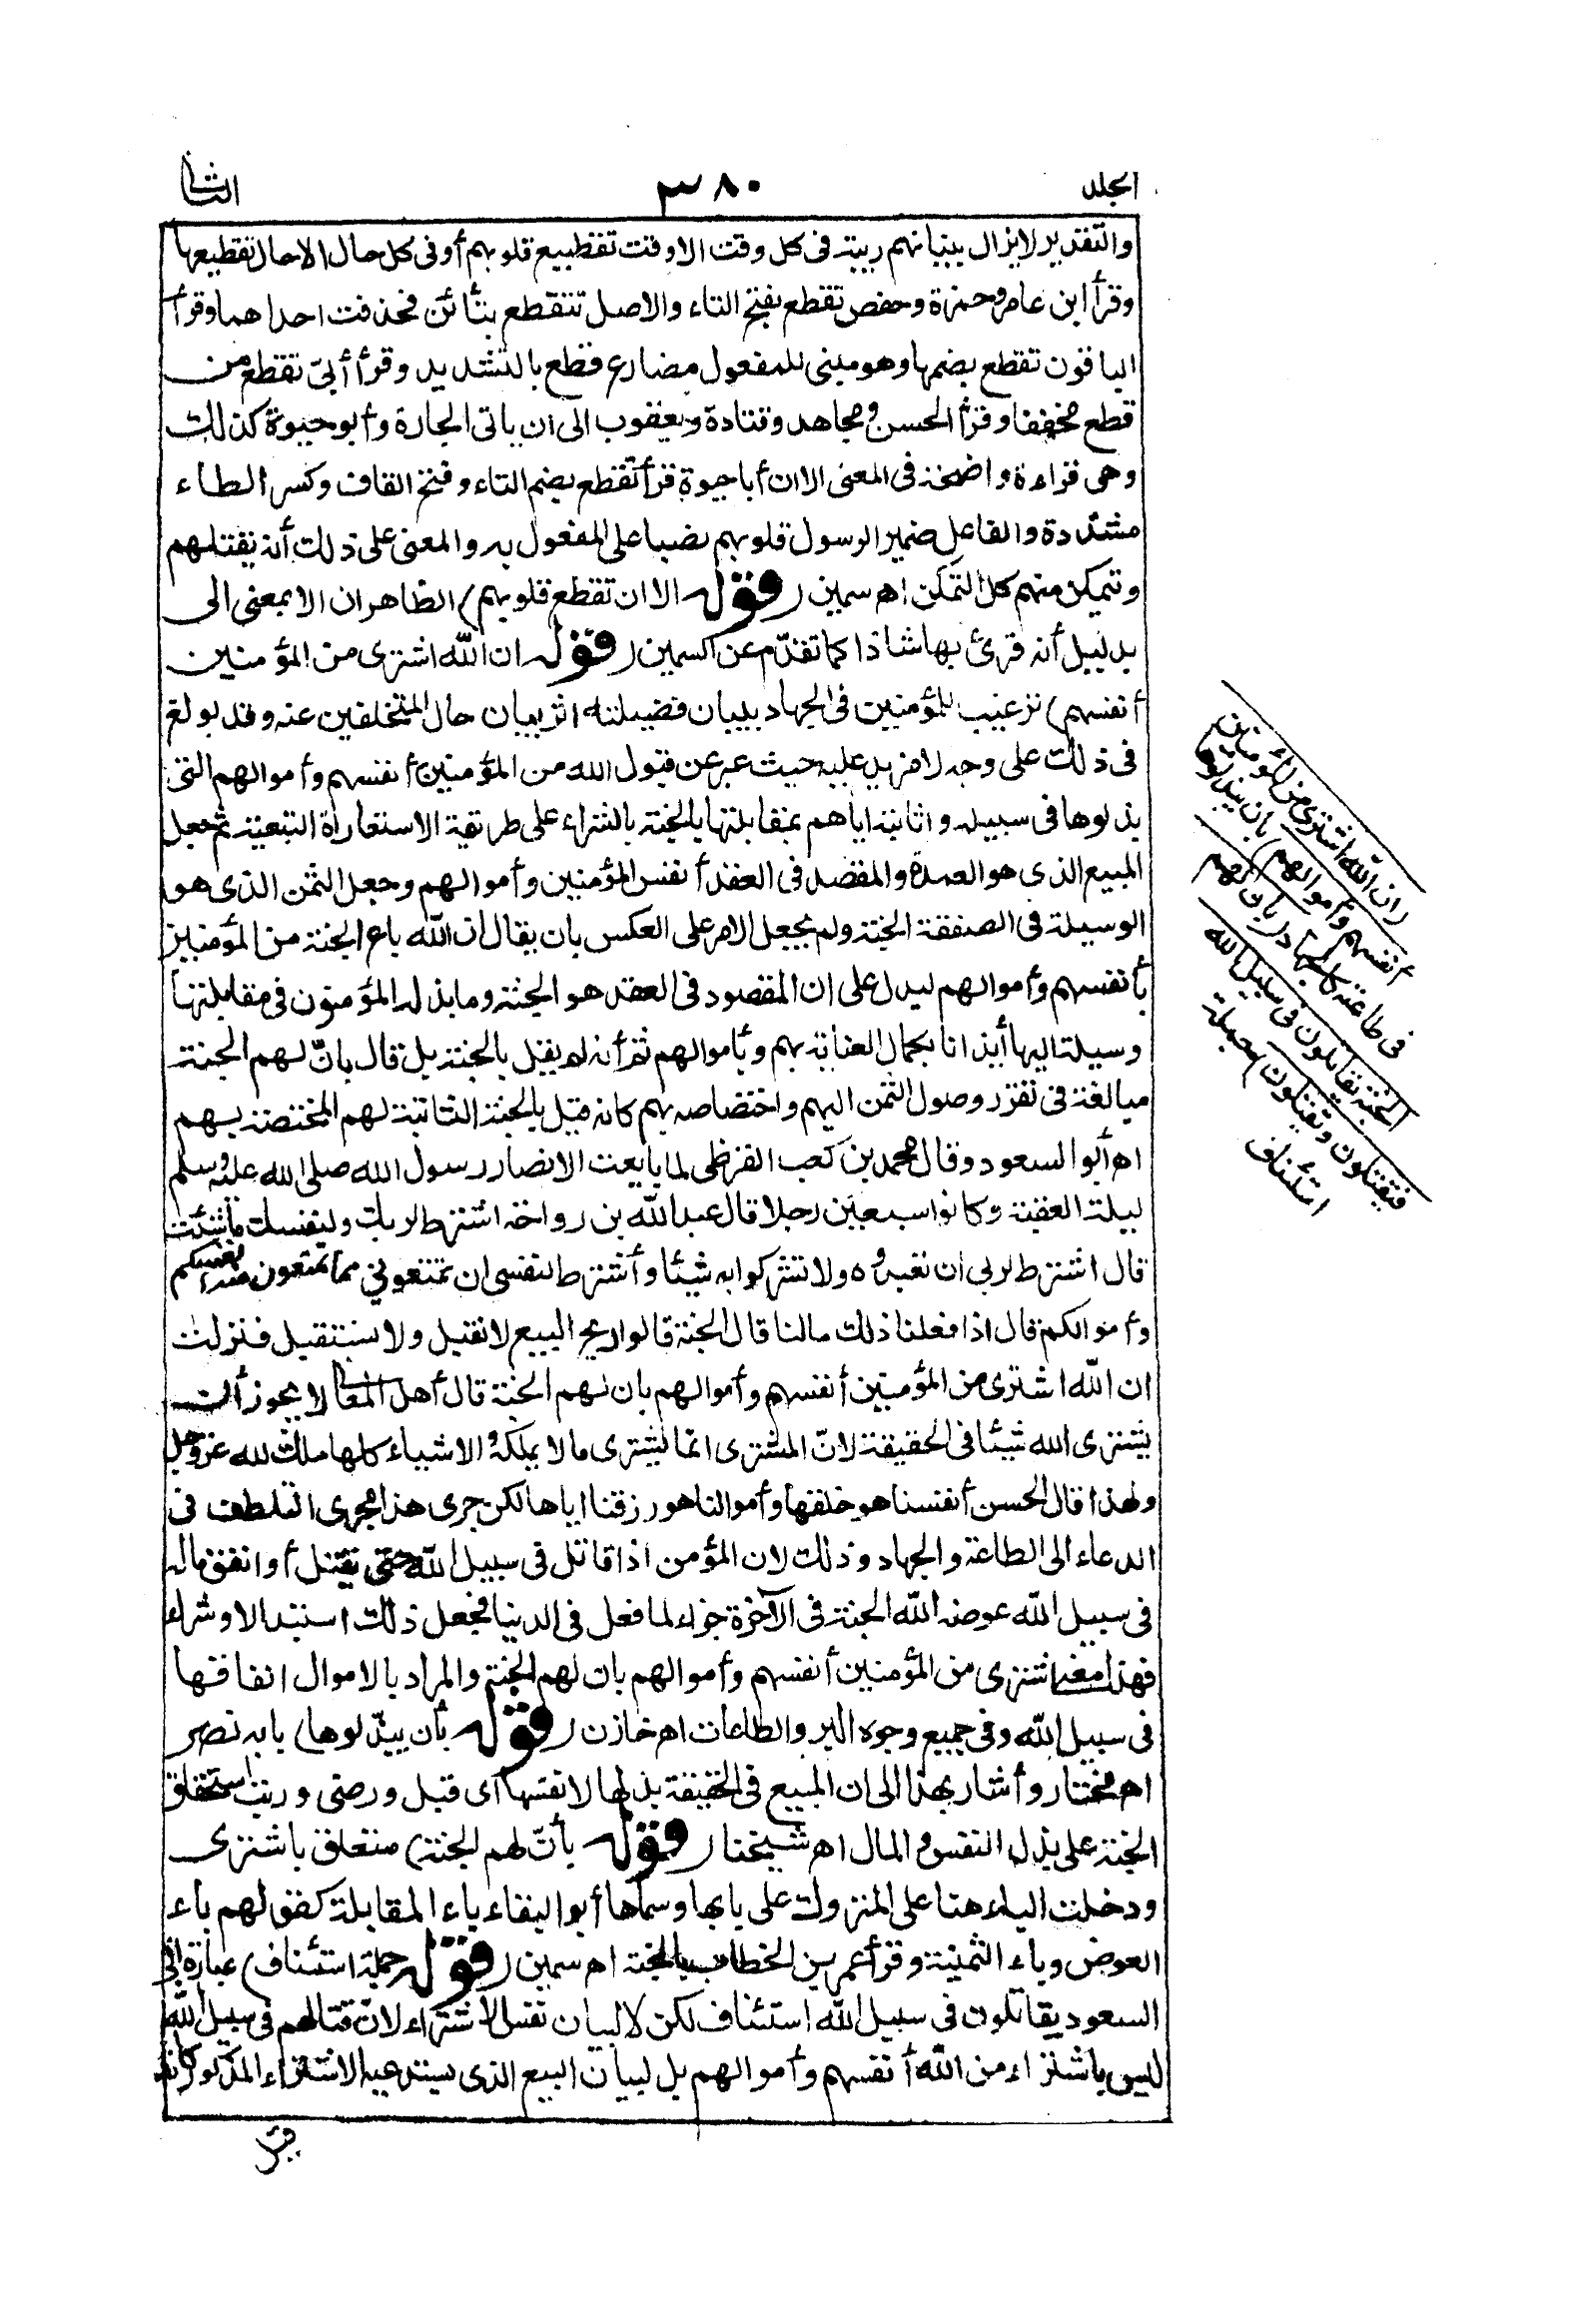 الجلد
٣٨٠
الثانى
والتقدير لا يزال بنيانهم ريبة فى كل وقت الا وقت تقطيع قلوبهم أو فى كل حال الا حال تقطيعها
وقرأ ابن عامر وحمزة وحفص تقطع بفتح التاء والاصل تتقطع بتائين فحذفت احداهما وقرأ
الباقون تقطع بضمها وهو مبنى للمفعول مضارع قطع بالتشديد وقرأ أبىّ تقطع من
قطع مخففا وقرأ الحسن ومجاهد وقتادة ويعقوب الى ان ياتى الجارة وأبو حيوة كذلك
وهى قراءة واضحة فى المعنى الا ان أبا حيوة قرأ تقطع بضم التاء وفتح القاف وكسر الطاء
مشددة والفاعل ضمير الرسول قلوبهم نصبا على المفعول به والمعنى على ذلك أنه يقتلهم
وتمكن منهم كل التمكن اھ سمين (قوله الا ان تقطع قلوبهم) الظاهر ان الا بمعنى الى
بدليل أنه قرئ بها شاذا كما تقدّم عن السمين (قوله ان الله اشترى من المؤمنين
أنفسهم) ترغيب للمؤمنين فى الجهاد ببيان فضيلته اثر بيان حال المتخلفين عنه وقد بولغ
فى ذلك على وجه لا مزيد عليه حيث عبر عن قبول الله من المؤمنين أنفسهم وأموالهم التى
بذلوها فى سبيله واثابته اياهم بمقابلتها بالجنة بالشراء على طريقة الاستعارة التبعية ثم جعل
المبيع الذى هو العمدة والمقصد فى العقد أنفس المؤمنين وأموالهم وجعل الثمن الذى هو
الوسيلة فى الصفقة الجنة ولم يجعل الامر على العكس بان يقال ان الله باع الجنة من المؤمنين
بأنفسهم وأموالهم ليدل على ان المقصود فى العقد هو الجنة وما بذله المؤمنون فى مقابلتها
وسيلة اليها أيذانا بكمال العناية بهم وبأموالهم ثم أنه لم يقل بالجنة بل قال بانّ لهم الجنة
مبالغة فى تقرر وصول الثمن اليهم واختصاصه بهم كانه قيل بالجنة الثابتة لهم المختصة بهم
اھ أبو السعود وقال محمد بن كعب القرظى لما بايعت الانصار رسول الله صلى الله عليه وسلم
ليلة العقبة وكانوا سبعين رجلا قال عبد الله بن رواحة اشترط لربك ولنفسك ما شئت
قال اشترط لربى ان تعبدوه ولا تشركوا به شيئا وأشترط لنفسى ان تمنعونى مما تمنعون منه أنفسكم
وأموالكم قال اذا فعلنا ذلك مالنا قال الجنة قالوا ربح البيع لا نقيل ولا نستقيل فنزلت
ان الله اشترى من المؤمنين أنفسهم وأموالهم بان لهم الجنة قال أهل المعانى لا يجوز أن
يشترى الله شيئا فى الحقيقة لانّ المشترى انما يشترى ما لا يملكه والاشياء كلها ملك لله عز وجل
ولهذا قال الحسن أنفسنا هو خلقها وأموالنا هو رزقنا اياها لكن جرى هذا مجرى التلطف فى
الدعاء الى الطاعة والجهاد وذلك لان المؤمن اذا قاتل فى سبيل الله حتى يقتل أو انفق ماله
فى سبيل الله عوضه الله الجنة فى الآخرة جزاء لما فعل فى الدنيا فجعل ذلك استبدالا وشراء
فهذا معنى اشترى من المؤمنين أنفسهم وأموالهم بان لهم الجنة والمراد بالاموال انفاقها
فى سبيل الله وفى جميع وجوه البر والطاعات اھ خازن (قوله بأن يبذلوها) بابه نصر
اھ مختار وأشار بهذا الى ان المبيع فى الحقيقة بذلها لا نفسها اى قبل ورضى ورتب استحقاق
الجنة على بذل النفس والمال اھ شيخنا (قوله بأنّ لهم الجنة) متعلق باشترى
ودخلت الباء هنا على المتروك على بابها وسماها أبو البقاء باء المقابلة كقولهم باء
العوض وباء الثمنية وقرأ عمر بن الخطاب بالجنة اھ سمين (قوله جملة استئناف) عبارة أبى
السعود يقاتلون فى سبيل الله استئناف لكن لا لبيان نفس الاشتراء لانّ قتالهم فى سبيل الله
ليس باشتراء من الله أنفسهم وأموالهم بل لبيان البيع الذى يستدعيه الاشتراء المذكور كانه
قيل
(ان الله اشترى من المؤمنين
أنفسهم وأموالهم) بان يبذلوها
فى طاعته كالجهاد (بان لهم
الجنة يقاتلون فى سبيل الله
فيقتلون ويقتلون) جملة
استئناف